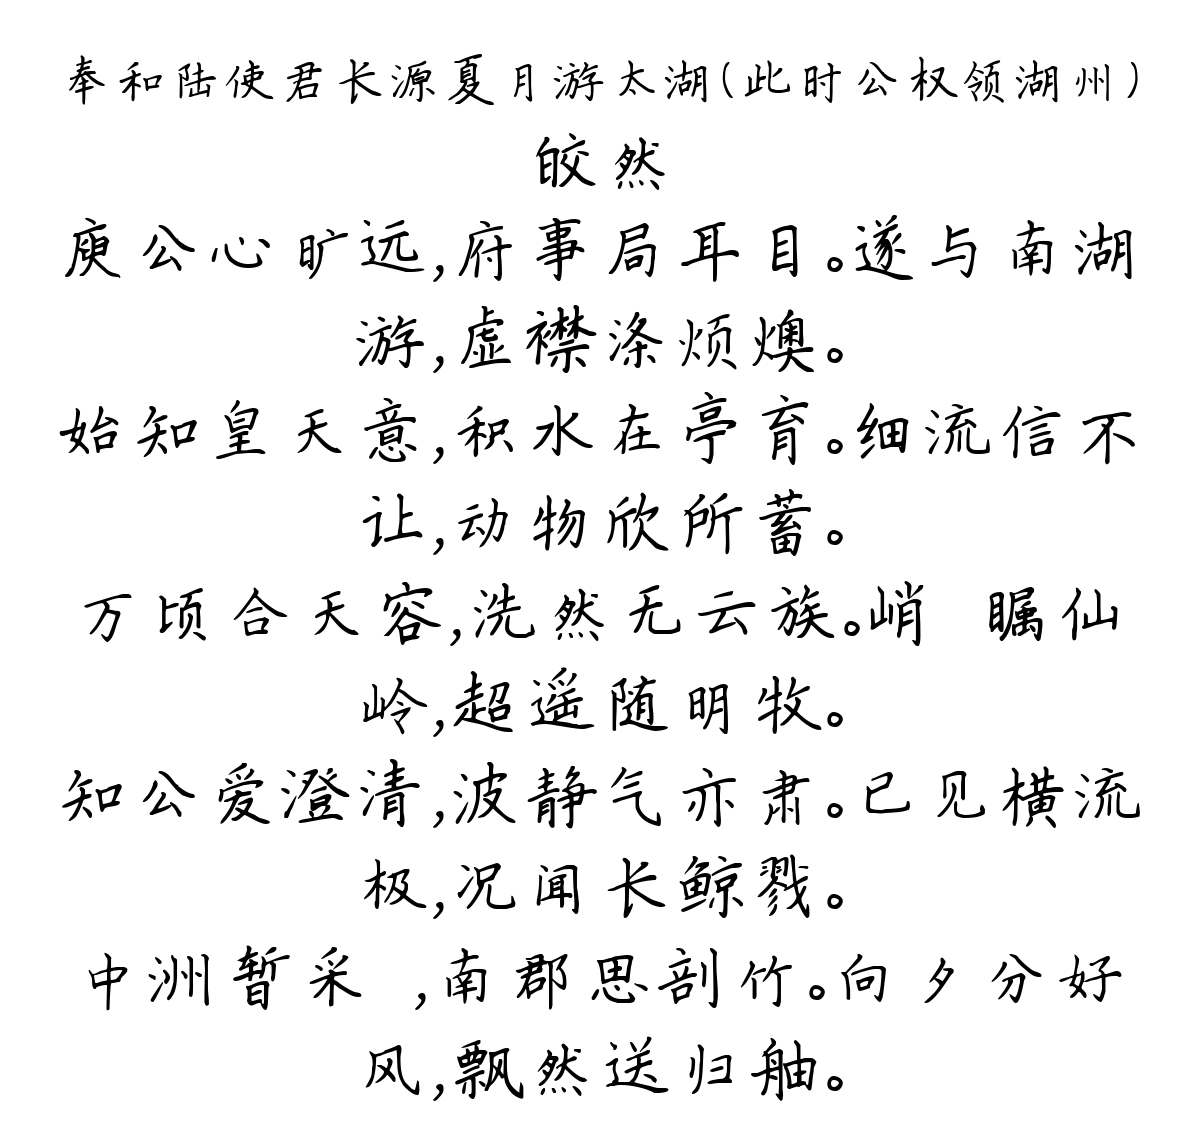 奉和陆使君长源夏月游太湖(此时公权领湖州)
皎然
庾公心旷远,府事局耳目。遂与南湖
游,虚襟涤烦燠。
始知皇天意,积水在亭育。细流信不
让,动物欣所蓄。
万顷合天容,洗然无云族。峭 瞩仙
岭,超遥随明牧。
知公爱澄清,波静气亦肃。已见横流
极,况闻长鲸戮。
中洲暂采 ,南郡思剖竹。向夕分好
风,飘然送归舳。